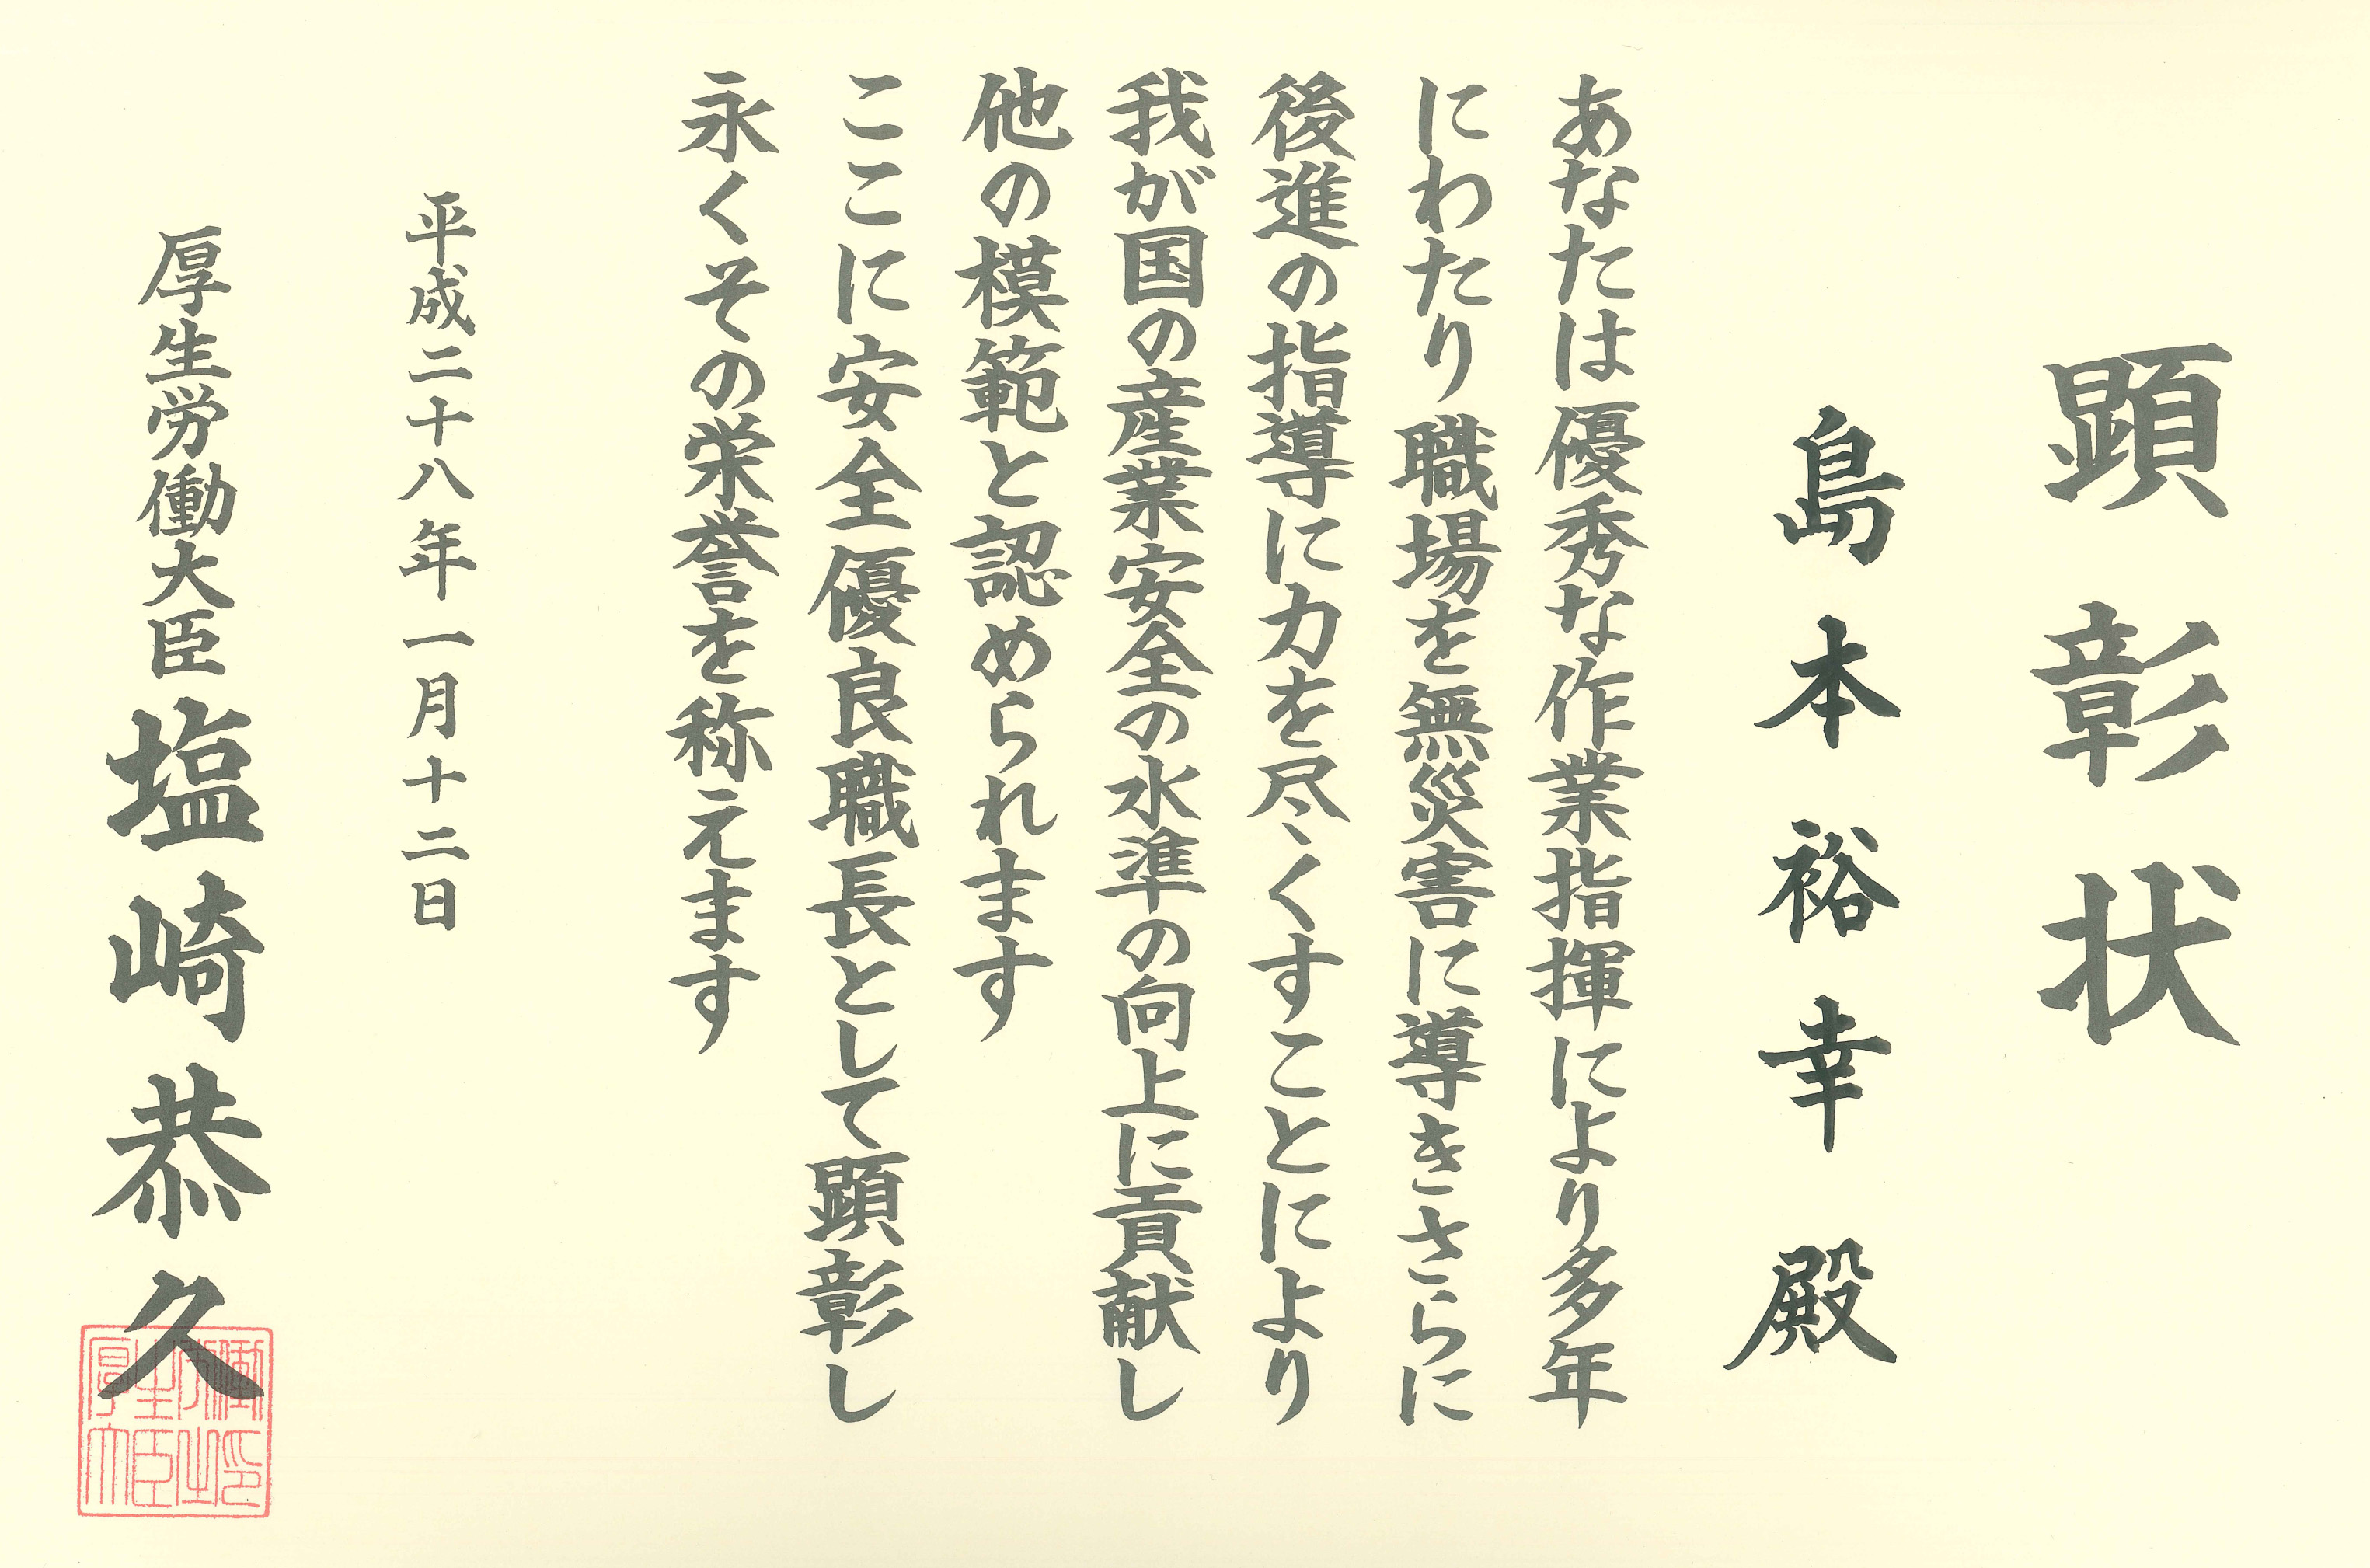 顕彰状
島本裕幸殿
あなたは優秀な作業指揮により多年
にわたり職場を無災害に導きさらに
後進の指導に力を尽くすことにより
我が国の産業安全の水準の向上に貢献し
他の模範と認められます
ここに安全優良職長として顕彰し
永くその栄誉を称えます
平成二十八年一月十二日
厚生労働大臣塩崎恭久
厚生労働
大臣之印